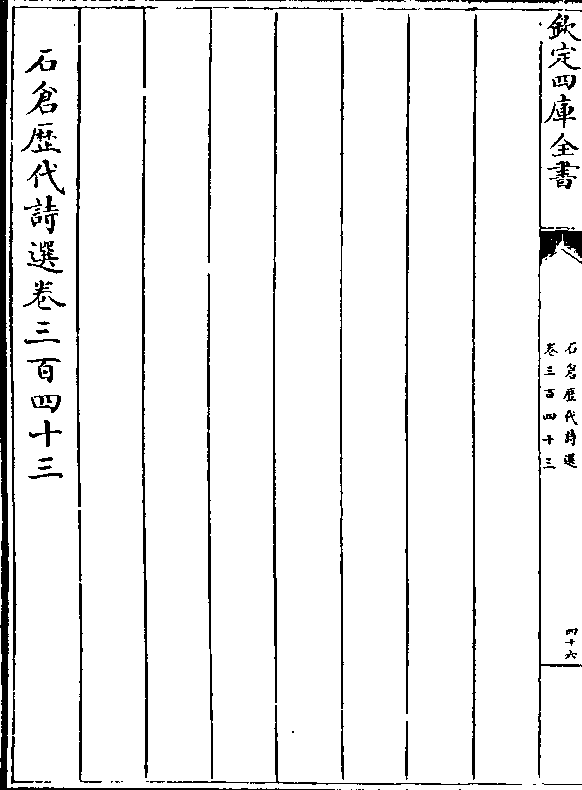 欽定四庫全書
石倉歷代詩選
卷三百四十三
四十六
石倉歷代詩選卷三百四十三